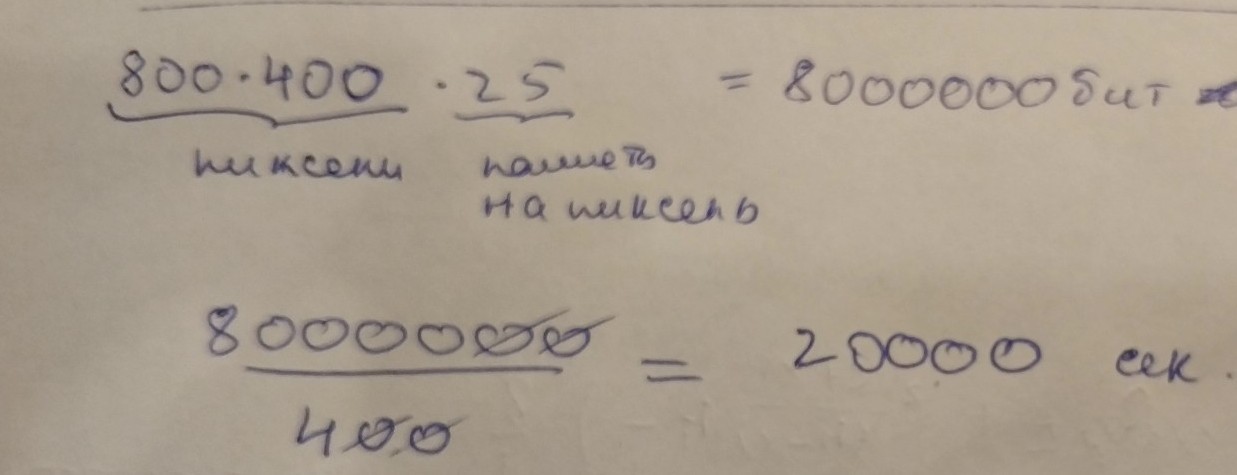 800·400 · 25 = 8000000 бит
пиксели память
на пиксель
8000000
400
= 20000 сек.